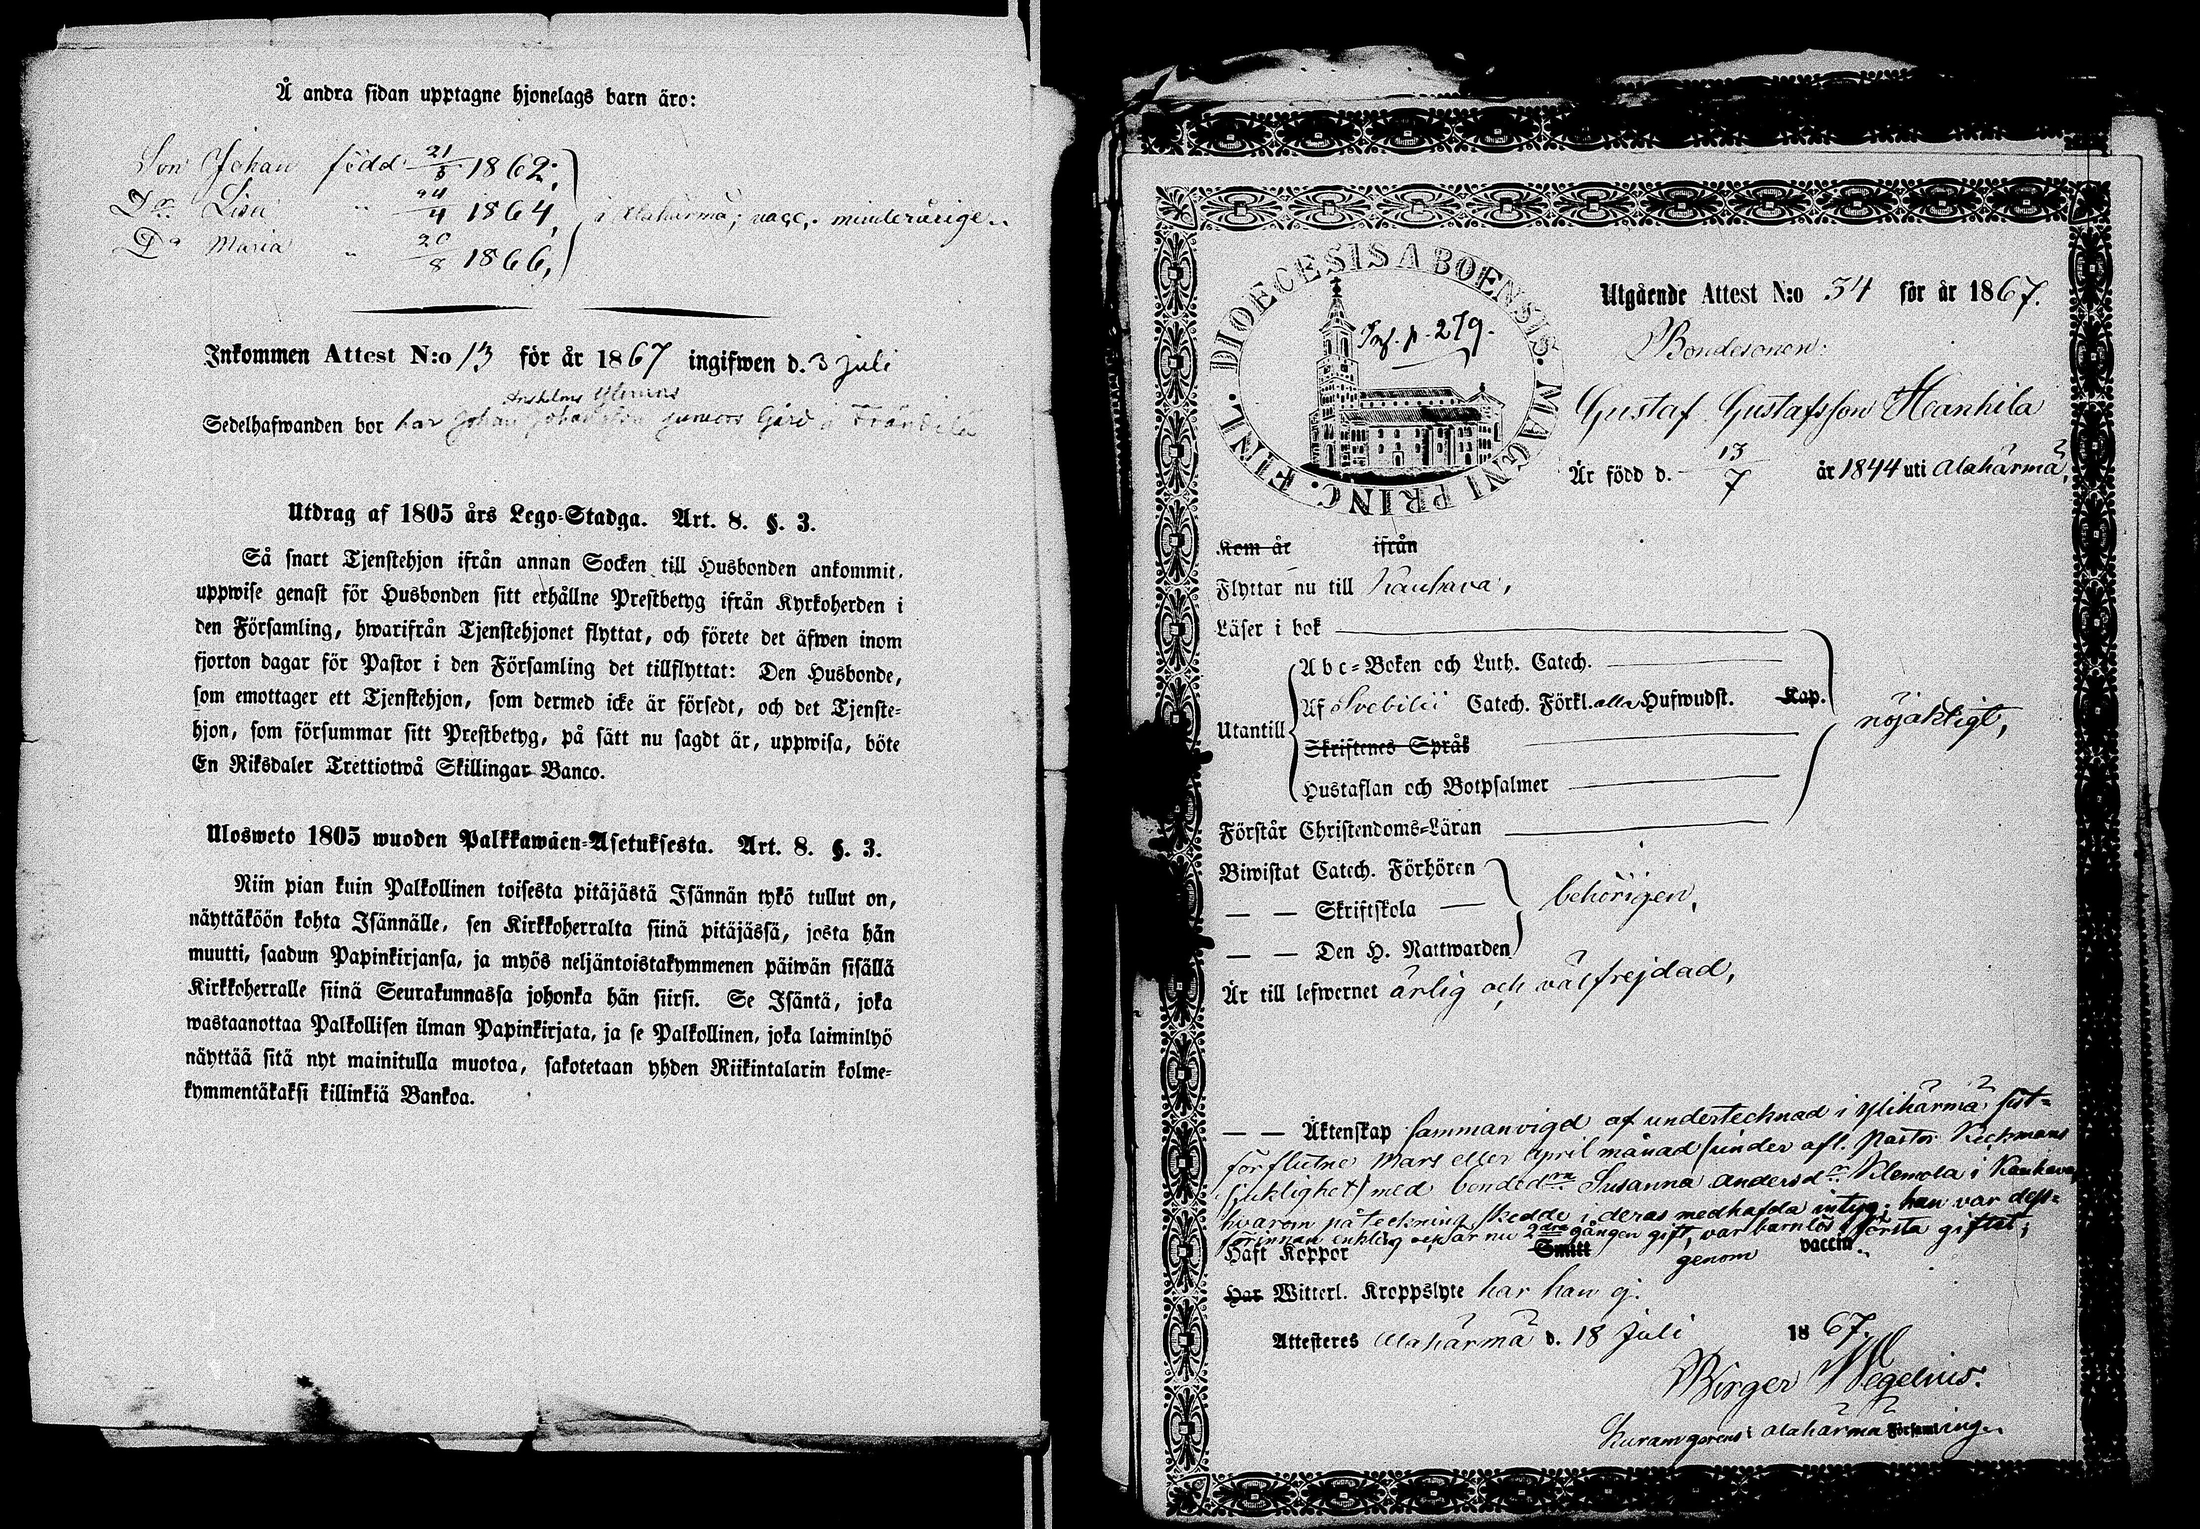 Å andra sidan upptagne hjonelags barn äro:
Son Johan född 21/5 1862;
Dr. Lisa " 24/4 1864,
i Alahärmä; vacc. minderårige.
Da Maria " 20/8 1866,
Inkommen Attest N:o 13 för år 1867 ingifwen d. 3 Juli
Sedelhafwanden bor har Johan Johansson juniors Gård i
Utdrag af 1805 års Lego-Stadga. Art. 8. §. 3.
Så snart Tjenstehjon ifrån annan Socken till Husbonden ankommit,
uppwise genast för Husbonden sitt erhållne Prestbetyg ifrån Kyrkoherden i
den Församling, hwarifrån Tjenstehjonet flyttat, och förete det äfwen inom
fjorton dagar för Pastor i den Församling det tillflyttat: Den Husbonde,
som emottager ett Tjenstehjon, som dermed icke är försedt, och det Tjenste-
hjon, som försummar sitt Prestbetyg, på sätt nu sagdt är, uppwisa, böte
En Riksdaler Trettiotwå Skillingar Banco.
Ulosweto 1805 wuoden Palkkawäen-Asetuksesta. Art. 8. §. 3.
Niin pian kuin Palkollinen toisesta pitäjästä Isännän tykö tullut on,
näyttäköön kohta Isännälle, sen Kirkkoherralta siinä pitäjässä, josta hän
muutti, saadun Papinkirjansa, ja myös neljäntoistakymmenen päiwän sisällä
Kirkkoherralle siinä Seurakunnassa johonka hän siirsi. Se Isäntä, joka
wastaanottaa Palkollisen ilman Papinkirjata, ja se Palkollinen, joka laiminlyö
näyttää sitä nyt mainitulla muotoa, sakotetaan yhden Riikintalarin kolme-
kymmentäkaksi killinkiä Bankoa.
DIOECESIS ABOENSIS. MAGNI PRINC. FINL.
Inf. p. 279.
Utgående Attest N:o 54 för år 1867.
Bondesonen:
Gustaf Gustafsson Hanhila
Är född d. 13/7 år 1844 uti Alahärmä,
Kom år ifrån
Flyttar nu till Kauhava,
Läser i bok
Utantill
Abc-Boken och Luth. Catech.
Af Svebilii Catech. Förkl. alla Hufwudst. Kap.
Skriftenes Språk
Hustaflan och Botpsalmer
nöjaktigt,
Förstår Christendoms-Läran
Biwistat Catech. Förhören
— — Skriftskola
— — Den H. Nattwarden
behörigen,
Är till lefwernet ärlig och välfrejdad,
— — Äktenskap sammanvigd af undertecknad i Ylihärmä sist-
förflutne Mars eller April månad (under afl. Pastor Keckmans
sjuklighet) med bonded:rn Susanna Andersd:r Klemola i Kauhava,
hvarom påteckning skedde i deras medhafda intyg; han var dess-
förinnan enkling och är nu 2dra gången gift, var barnlös i första giftet;
Haft Koppor Smitt genom vaccin.
Har Witterl. Kroppslyte har han ej.
Attesteres Alahärmä d. 18 Juli 1867.
Birger Wegelius.
Kuram gerens i Alahärmä Församling.